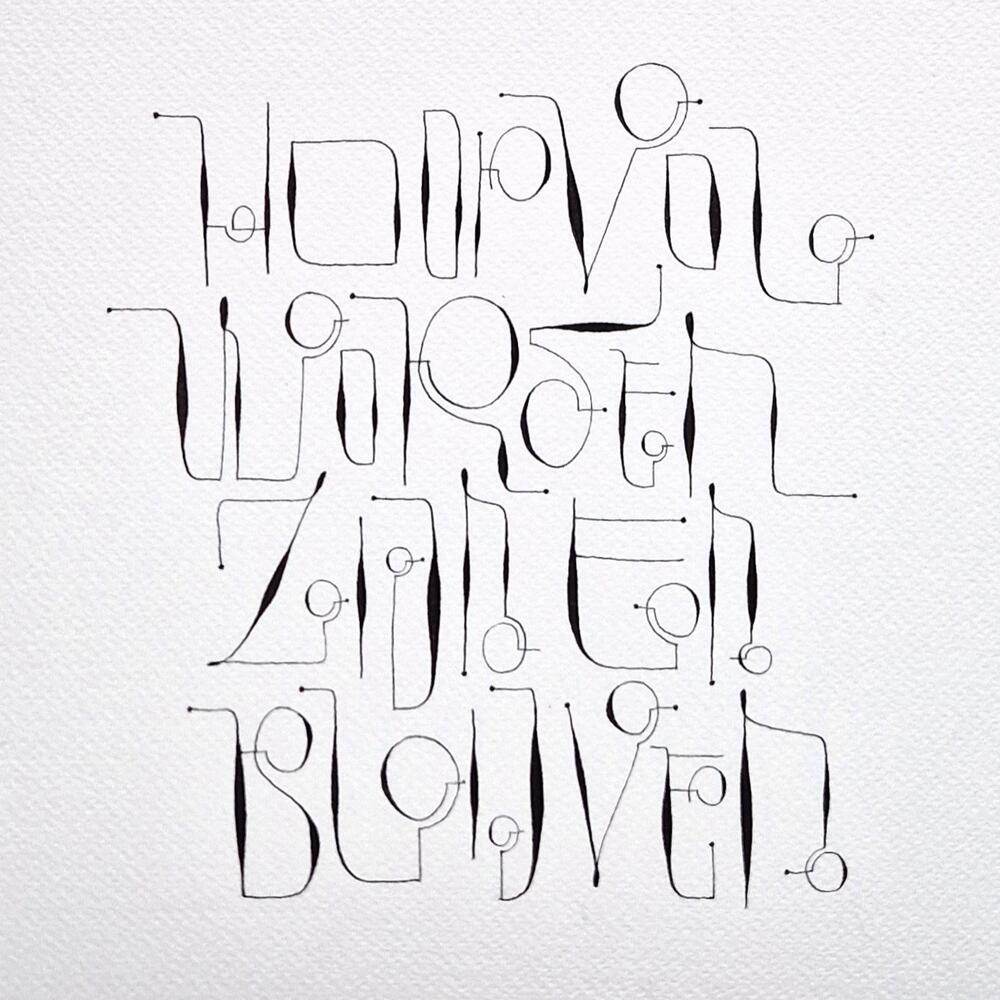 HOOPVOL
WORDEN
ZIJN EN
BLIJVEN